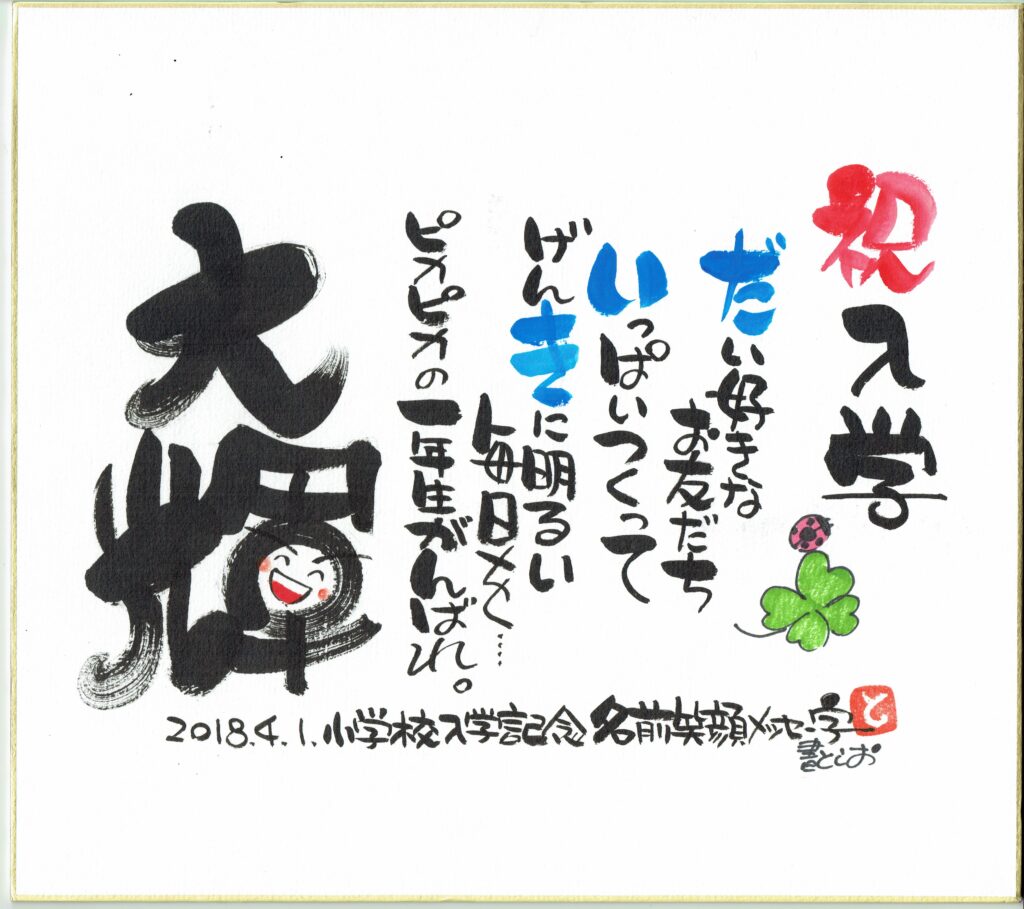 祝入学
だい好きな
お友だち
いっぱいつくって
げんきに明るい
毎日〆〆く……
ピメピメの一年生がんばれ。
大輝
2018.4.1.小学校入学記念 名前笑顔メッセー字
と
書としお